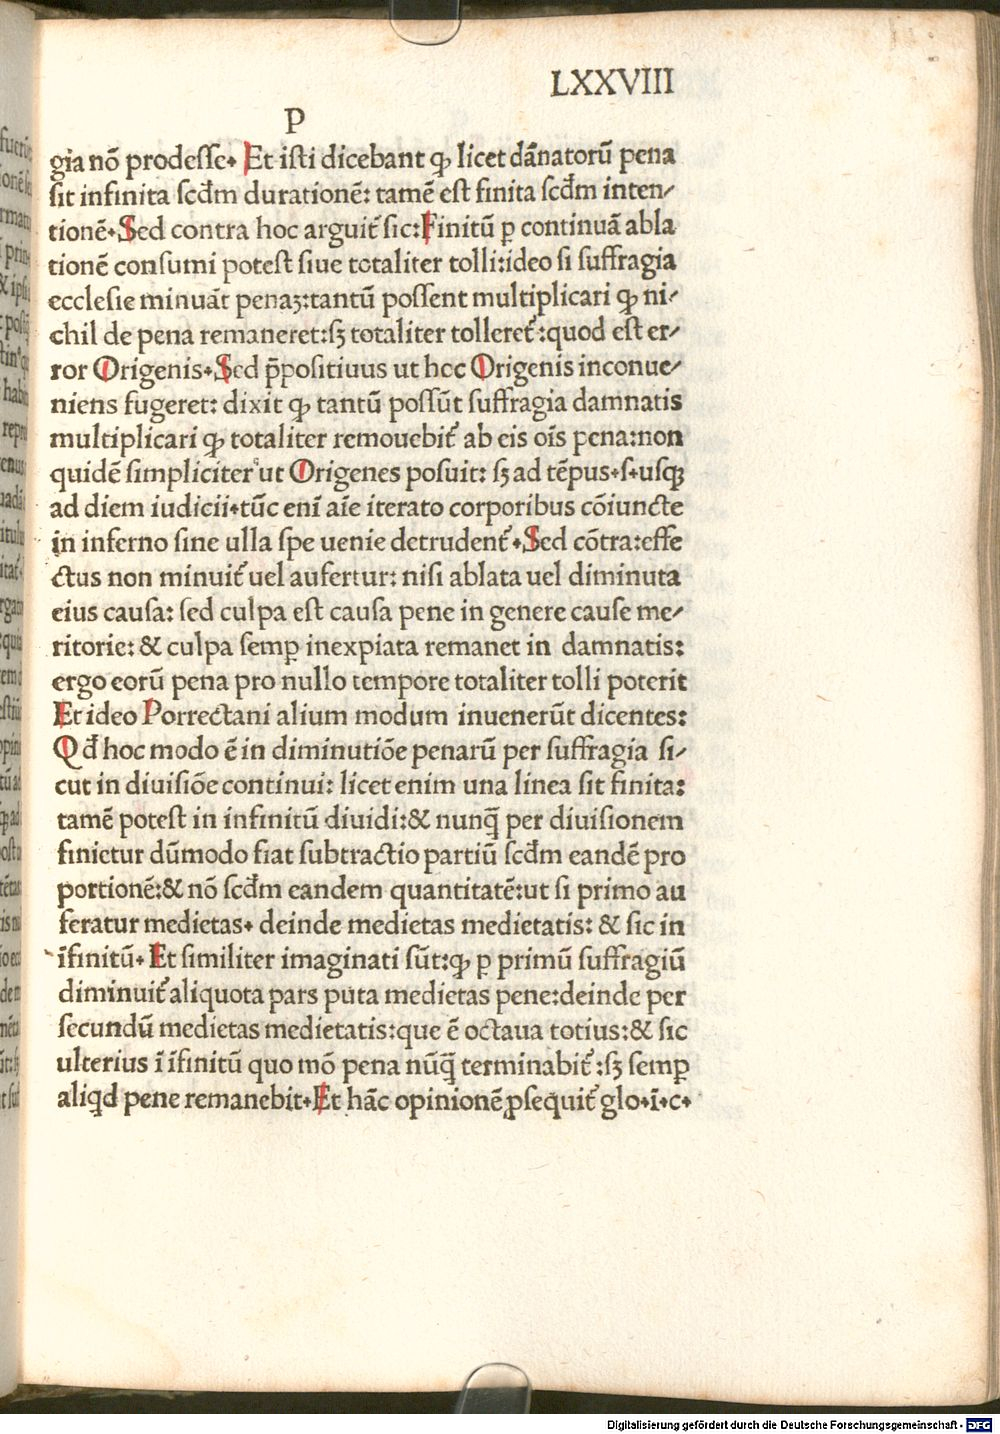 LXXVIII
P
gia nō prodesse. Et isti dicebant ꝙ licet dānatorū pena
sit infinita scd̄m durationē: tamē est finita scd̄m inten/
tionē. Sed contra hoc arguit᷑ sic: Finitū ꝑ continuā abla
tionē consumi potest siue totaliter tolli: ideo si suffragia
ecclesie minuāt penaꝫ: tantū possent multiplicari ꝙ ni/
chil de pena remaneret: sꝫ totaliter tolleret᷑: quod est er/
ror Origenis. Sed p̄positiuus ut hoc Origenis inconue/
niens fugeret: dixit ꝙ tantū possūt suffragia damnatis
multiplicari ꝙ totaliter remouebit᷑ ab eis oīs pena: non
quidē simpliciter ut Origenes posuit: sꝫ ad tēpus .s. usqꝫ
ad diem iudicii. tūc enī aīe iterato corporibus cōiuncte
in inferno sine ulla spe uenie detrudent᷑. Sed cōtra: effe
ctus non minuit᷑ uel aufertur: nisi ablata uel diminuta
eius causa: sed culpa est causa pene in genere cause me/
ritorie: & culpa semꝑ inexpiata remanet in damnatis:
ergo eorū pena pro nullo tempore totaliter tolli poterit
Et ideo Porrectani alium modum inuenerūt dicentes:
Qd̄ hoc modo ē in diminutiōe penarū per suffragia si/
cut in diuisiōe continui: licet enim una linea sit finita:
tamē potest in infinitū diuidi: & nunq̄ per diuisionem
finietur dūmodo fiat subtractio partiū scd̄m eandē pro
portionē: & nō scd̄m eandem quantitatē: ut si primo au
feratur medietas. deinde medietas medietatis: & sic in
īfinitū. Et similiter imaginati sūt: ꝙ ꝑ primū suffragiū
diminuit᷑ aliquota pars puta medietas pene: deinde per
secundū medietas medietatis: que ē octaua totius: & sic
ulterius ī īfinitū quo mō pena nūq̄ terminabit᷑: sꝫ semꝑ
aliqd pene remanebit. Et hāc opinionē ꝓsequit᷑ glo. ī. c.
Digitalisierung gefördert durch die Deutsche Forschungsgemeinschaft - DFG